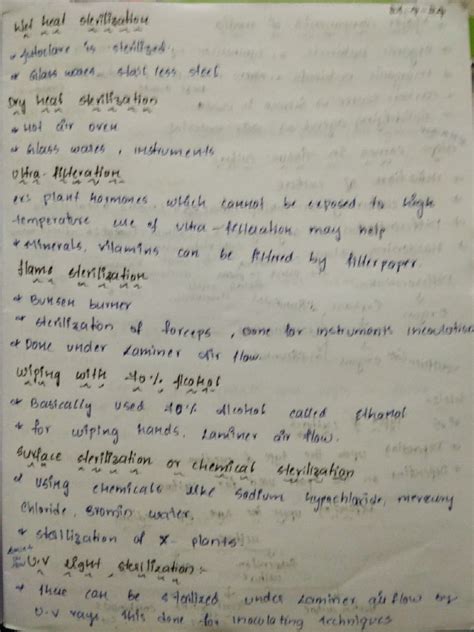 Wet heat sterilization
* Autoclave is sterilized.
* Glass wares, stast less steel.
Dry heat sterilization
* Hot air oven
* Glass wares, instruments
Ultra-filteration
ex: plant hormones, which cannot be exposed to high
temperature use of ultra-filteration may help
* Minerals, vitamins can be filtered by filter paper.
flame sterilization
* Bunsen burner
* sterilization of forceps, Done for instruments inoculation
* Done under Laminer air flow.
wiping with 70% Alcohol
* Basically used 70% alcohol called ethanol
* for wiping hands, Laminer air flow.
surface sterilization or chemical sterilization
* using chemicals like sodium hypochloride, mercury
chloride, Bromin water.
* sterilization of X- plants.
U.V light sterilization:-
* these can be sterilized under Laminer air flow by
U.V rays, this done for inoculating techniques